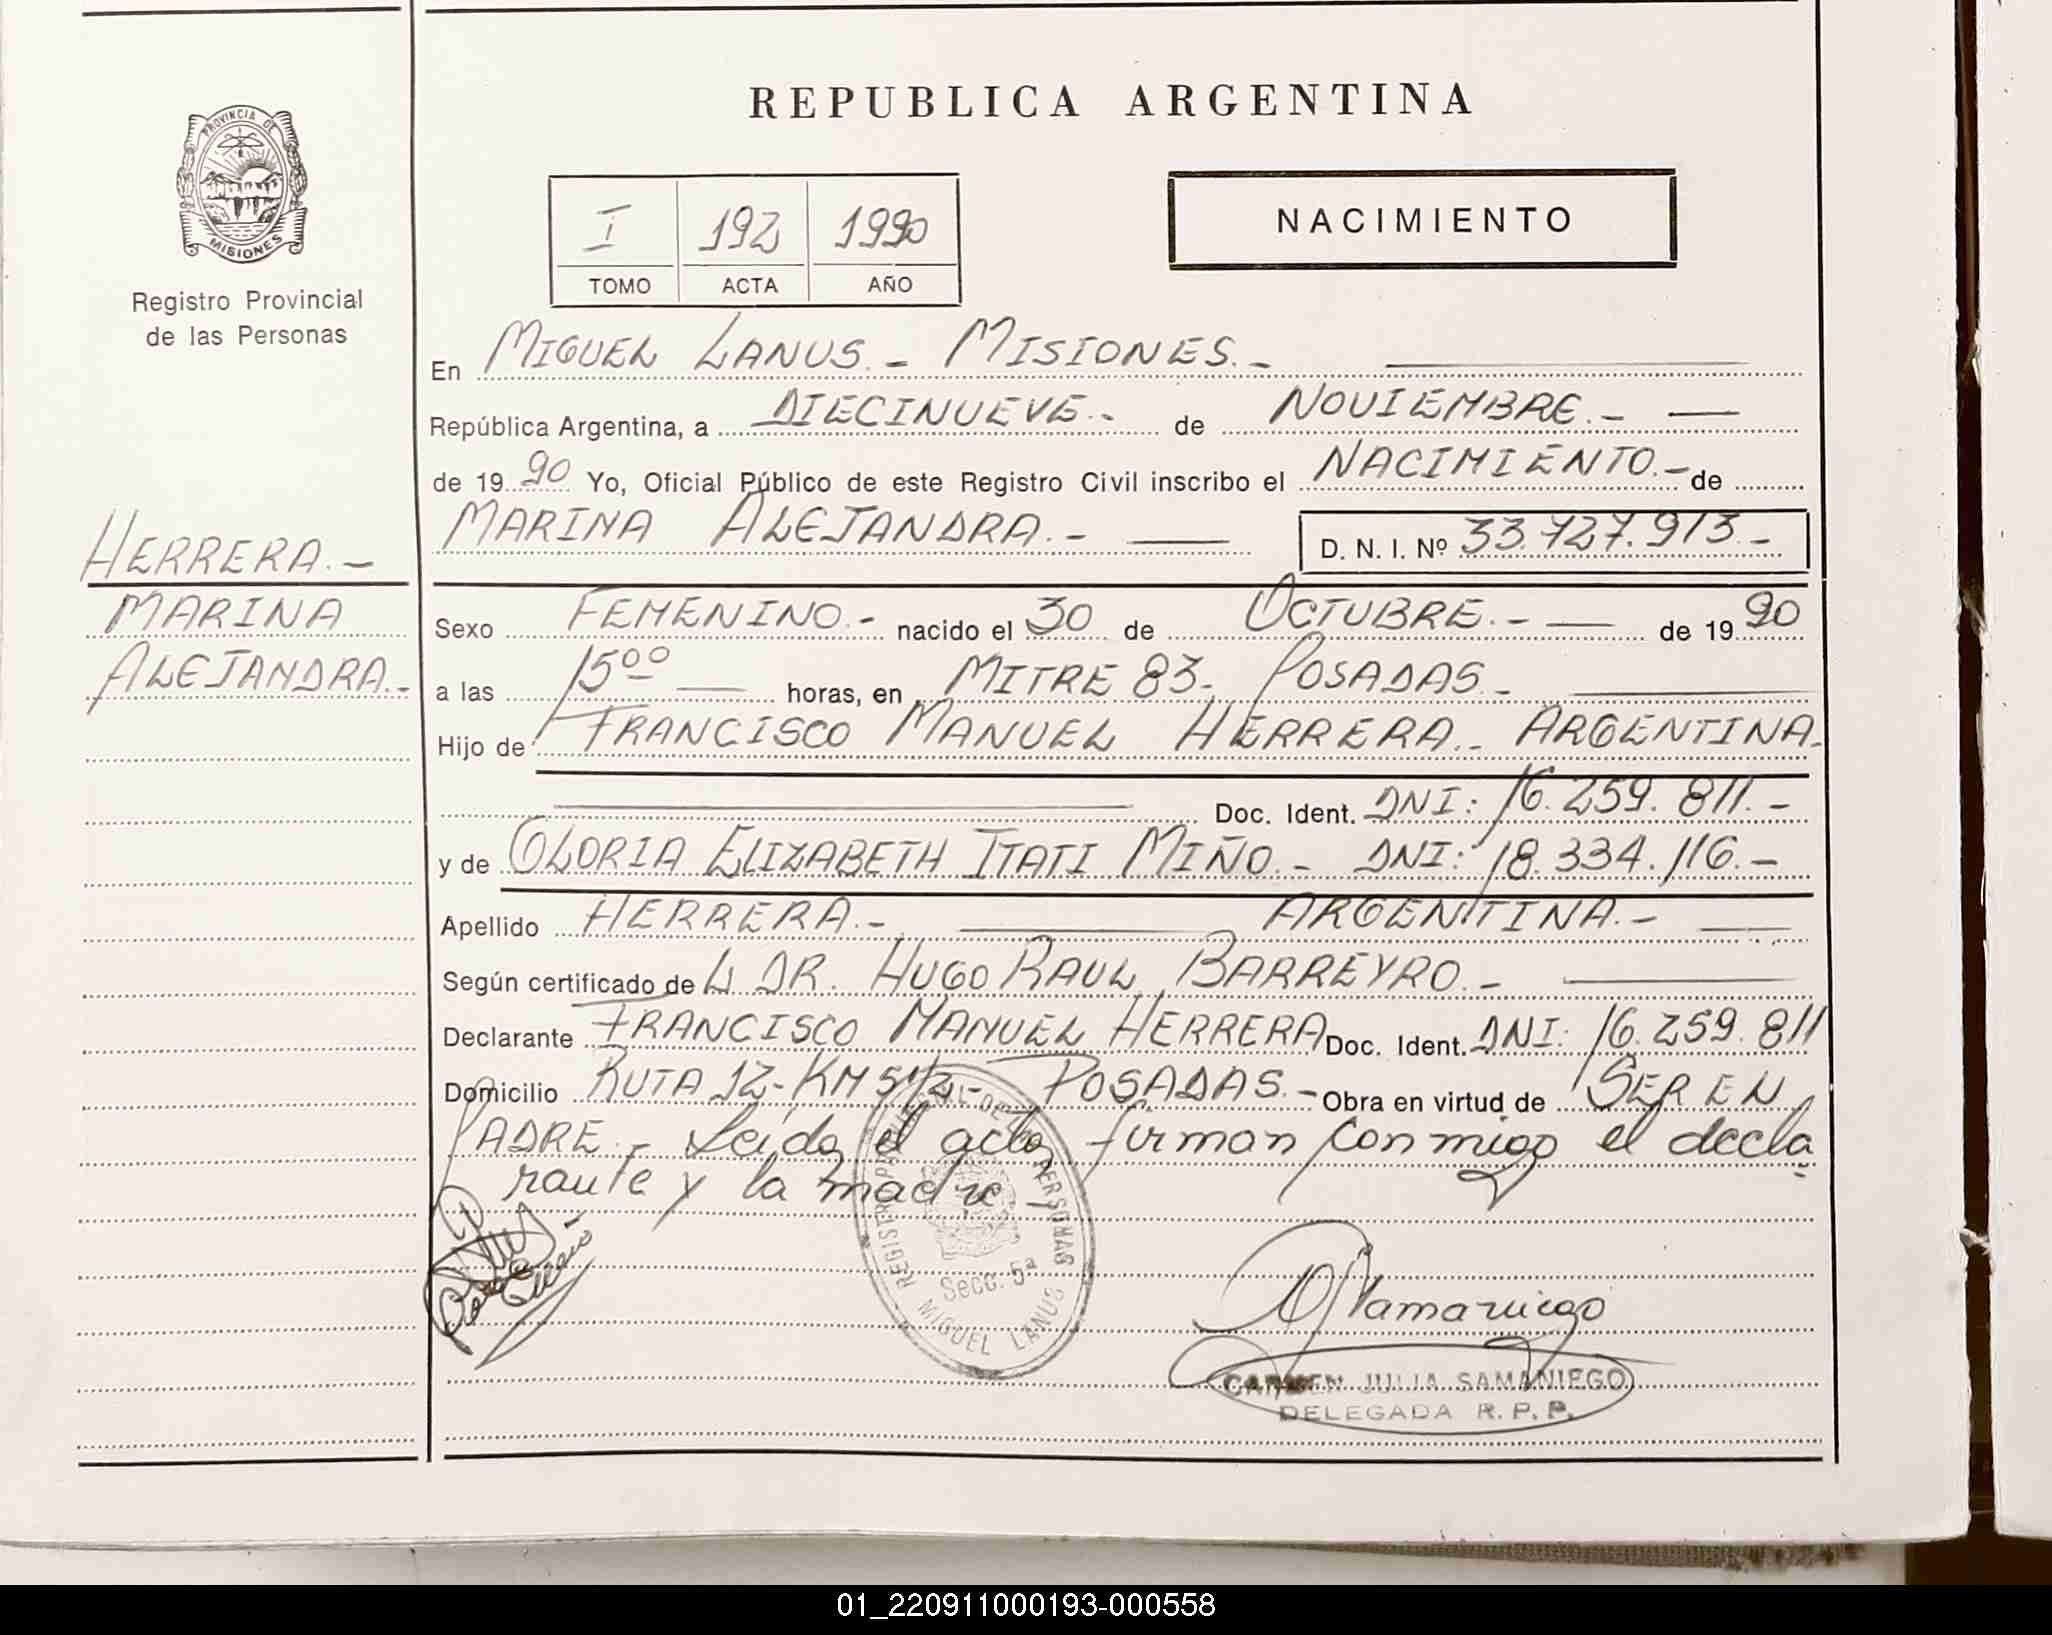 REPUBLICA ARGENTINA
PROVINCIA DE
MISIONES
Registro Provincial
de las Personas
I 192 1990
TOMO ACTA AÑO
NACIMIENTO
En MIGUEL LANUS.- MISIONES.-
República Argentina, a DIECINUEVE.- de NOVIEMBRE.-
de 1990 Yo, Oficial Público de este Registro Civil inscribo el NACIMIENTO.- de
MARINA ALEJANDRA.- D. N. I. Nº 33.727.913.-
HERRERA.-
MARINA
ALEJANDRA.-
Sexo FEMENINO.- nacido el 30 de OCTUBRE.- de 1990
a las 15ºº horas, en MITRE 83- POSADAS.-
Hijo de FRANCISCO MANUEL HERRERA.- ARGENTINA.-
Doc. Ident. DNI: 16.259.811.-
y de GLORIA ELIZABETH ITATI MIÑO.- DNI: 18.334.116.-
Apellido HERRERA.- ARGENTINA.-
Según certificado de L DR. HUGO RAUL BARREYRO.-
Declarante FRANCISCO MANUEL HERRERA Doc. Ident. DNI: 16.259.811
Domicilio RUTA 12- KM 5 1/2- POSADAS.- Obra en virtud de SER EN
PADRE.- Leida el acta, firman conmigo el decla
rante y la madre
REGISTRO PROVINCIAL DE LAS PERSONAS
Secc. 5ª
MIGUEL LANUS
CJSamaniego
CARMEN JULIA SAMANIEGO
DELEGADA R. P. P.
01_220911000193-000558